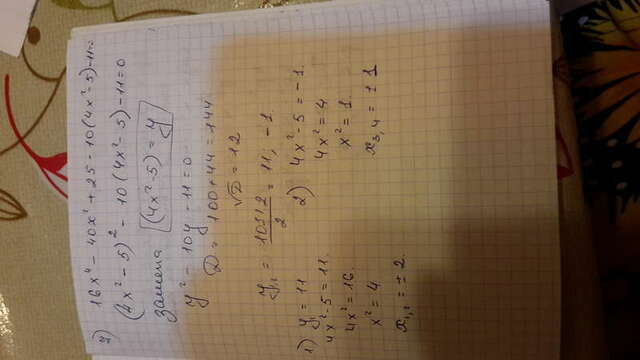 2) 16x⁴ - 40x² + 25 - 10(4x² - 5) - 11 =
(4x² - 5)² - 10(4x² - 5) - 11 = 0
замена (4x² - 5) = y
y² - 10y - 11 = 0
D = 100 + 44 = 144
√D = 12
y₁ = 10±12/2 = 11; -1.
1) y = 11
4x² - 5 = 11
4x² = 16
x² = 4
x₁,₂ = ± 2
2) 4x² - 5 = -1.
4x² = 4
x² = 1.
x₃,₄ = ± 1